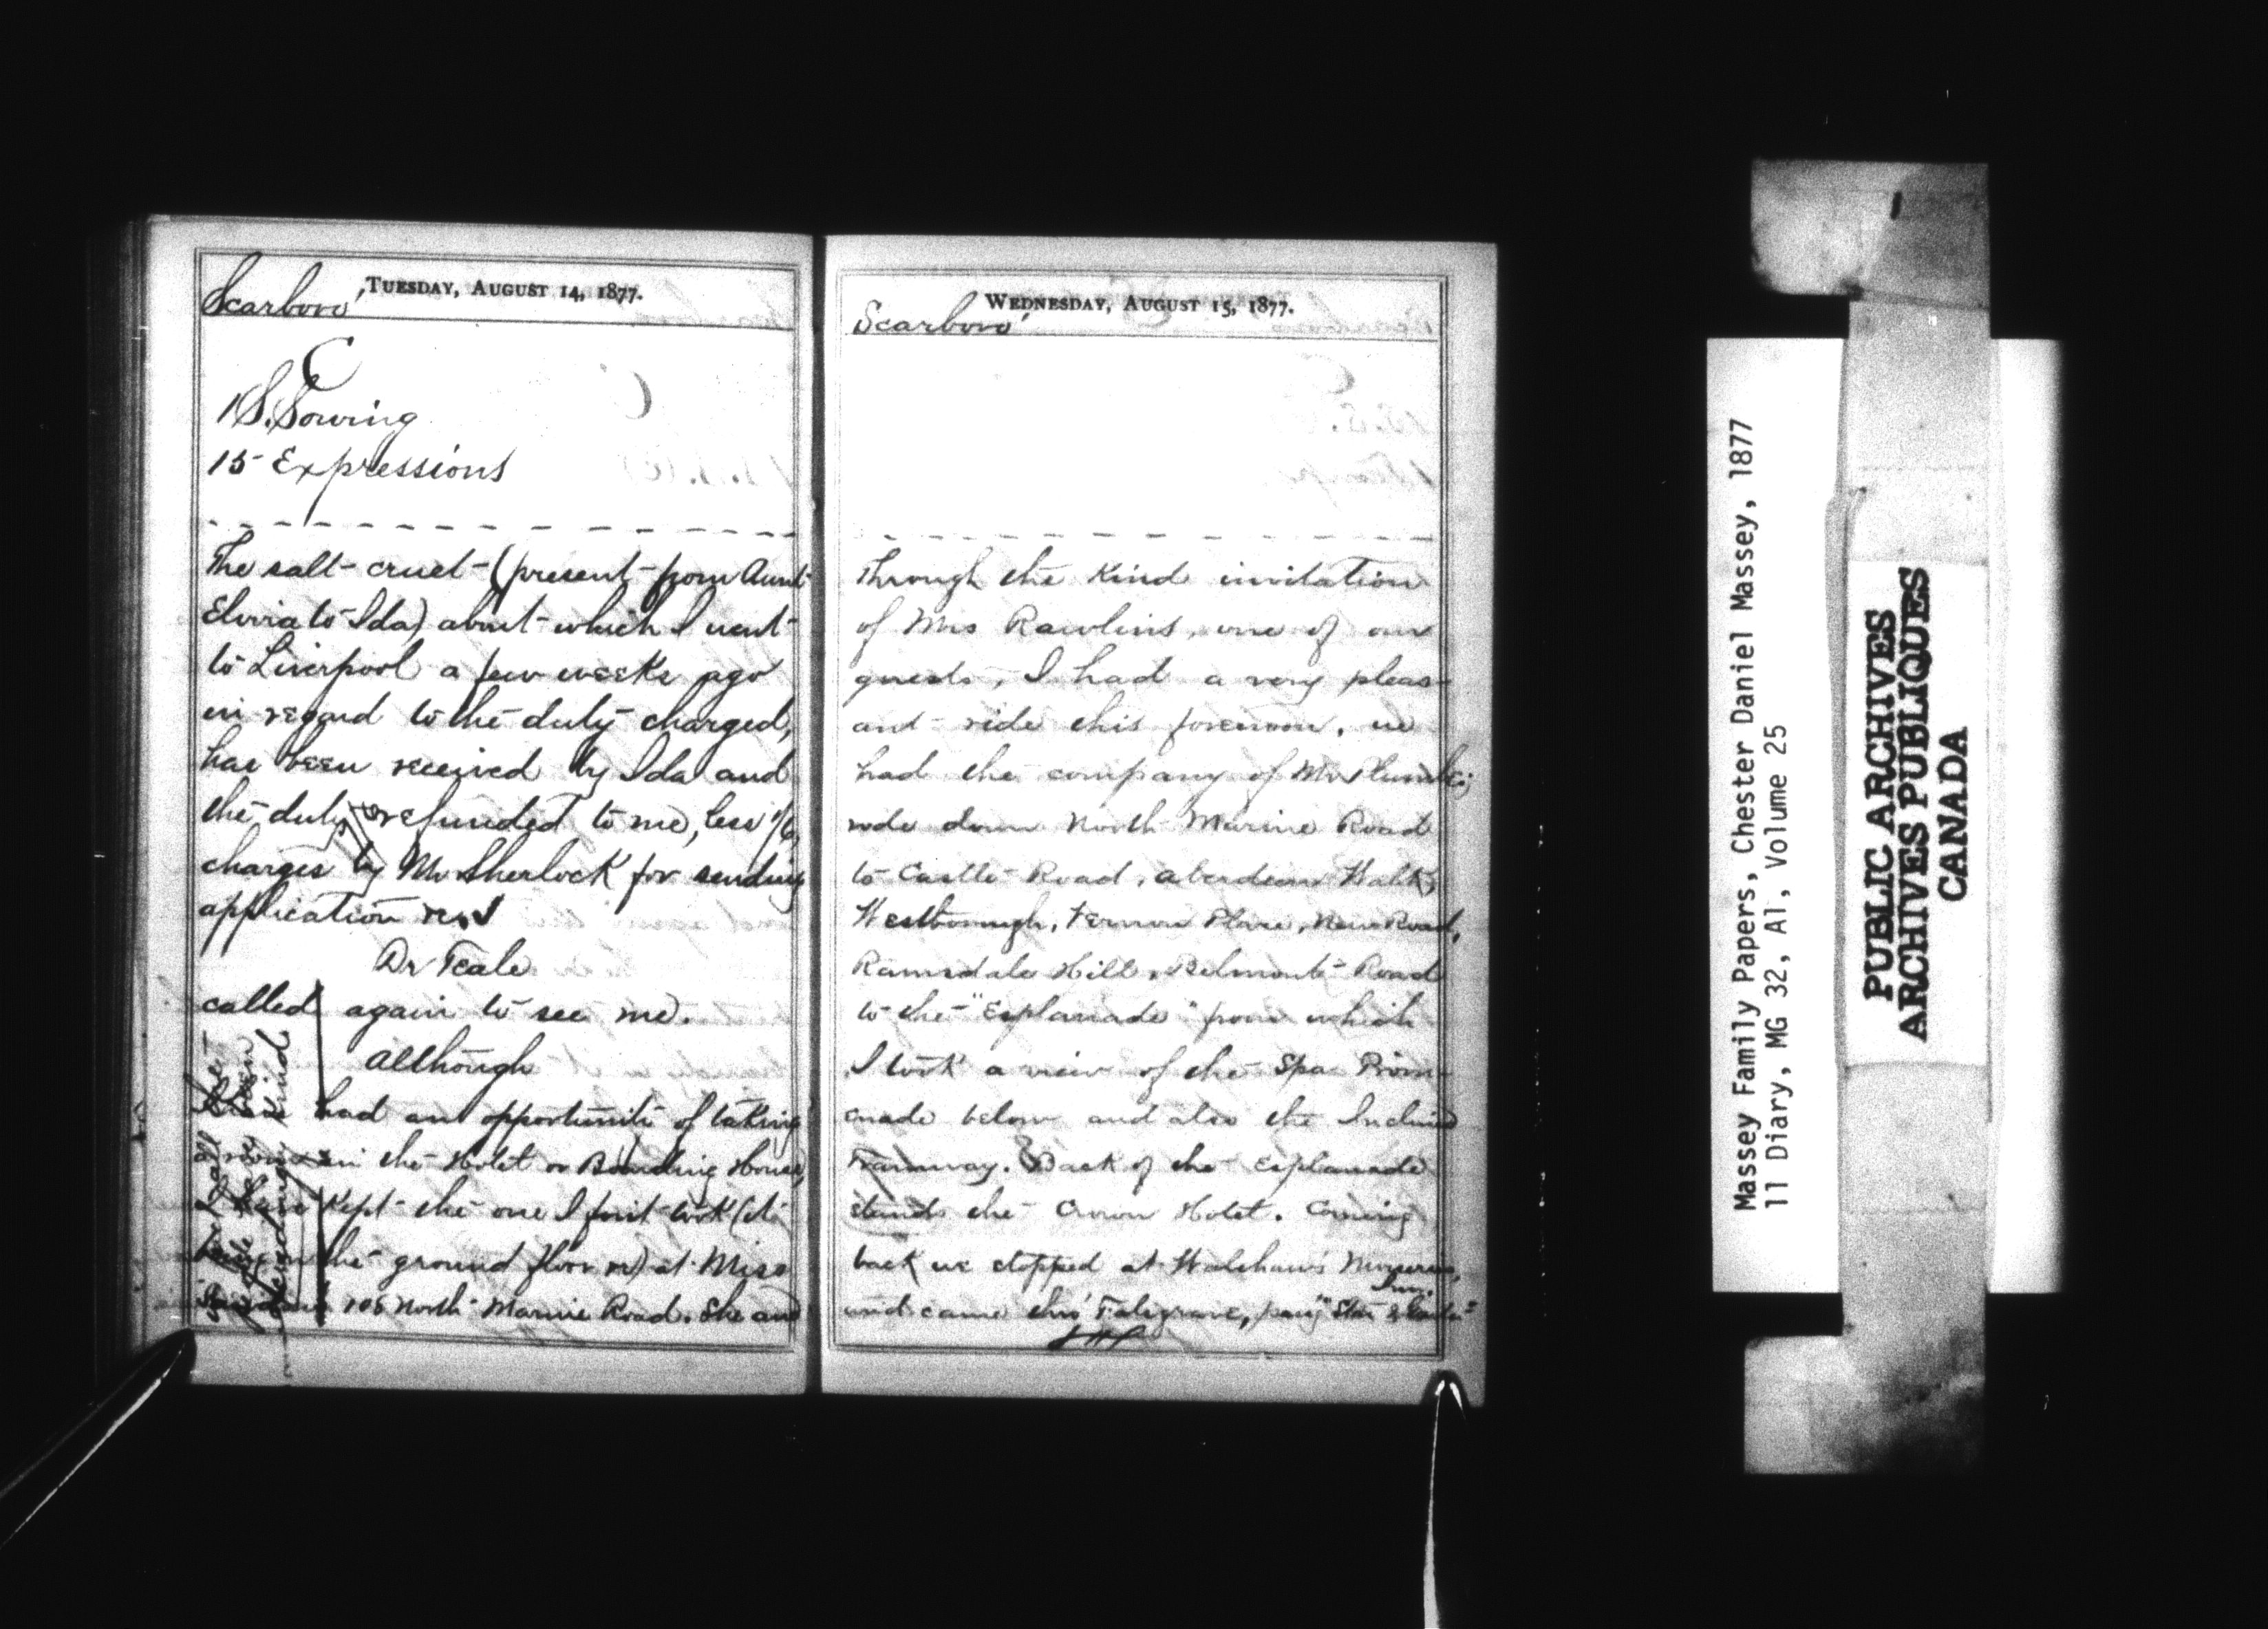 TUESDAY, AUGUST 14, 1877.
Scarboro'
C
1 S. Sowing
15 Expressions
The salt cruet (present from Aunt
Elvira to Ida) about which I went
to Liverpool a few weeks ago
in regard to the duty charged,
has been received by Ida and
the duty refunded to me, less 1/6,
charges by Mr Sherlock for sending
application &c.
Dr Teale
called again to see me.
Although
I have had an opportunity of taking
a room in the Hotel or Boarding House,
I have kept the one I first took (it
being on the ground floor &c) at Miss
108 North Marine Road. She and
kind
WEDNESDAY, AUGUST 15, 1877.
Scarboro'
Through the kind invitation
of Mrs Rawlins, one of our
guests, I had a very pleas-
ant ride this forenoon. We
had the company of Mr
rode down North Marine Road
to Castle Road, Aberdeen Walk,
Westborough, Vernon Place, New Road,
Ramsdale Hill, Belmont Road
to the "Esplanade" from which
I took a view of the Spa Prom-
enade below and also the Inclined
Tramway. Back of the Esplanade
stands the Crown Hotel. Coming
back we stopped at Walshaw's Nurseries,
and came thro' Falsgrave, "Star &
Inn.
Massey Family Papers, Chester Daniel Massey, 1877
11 Diary, MG 32, A1, Volume 25
PUBLIC ARCHIVES
ARCHIVES PUBLIQUES
CANADA